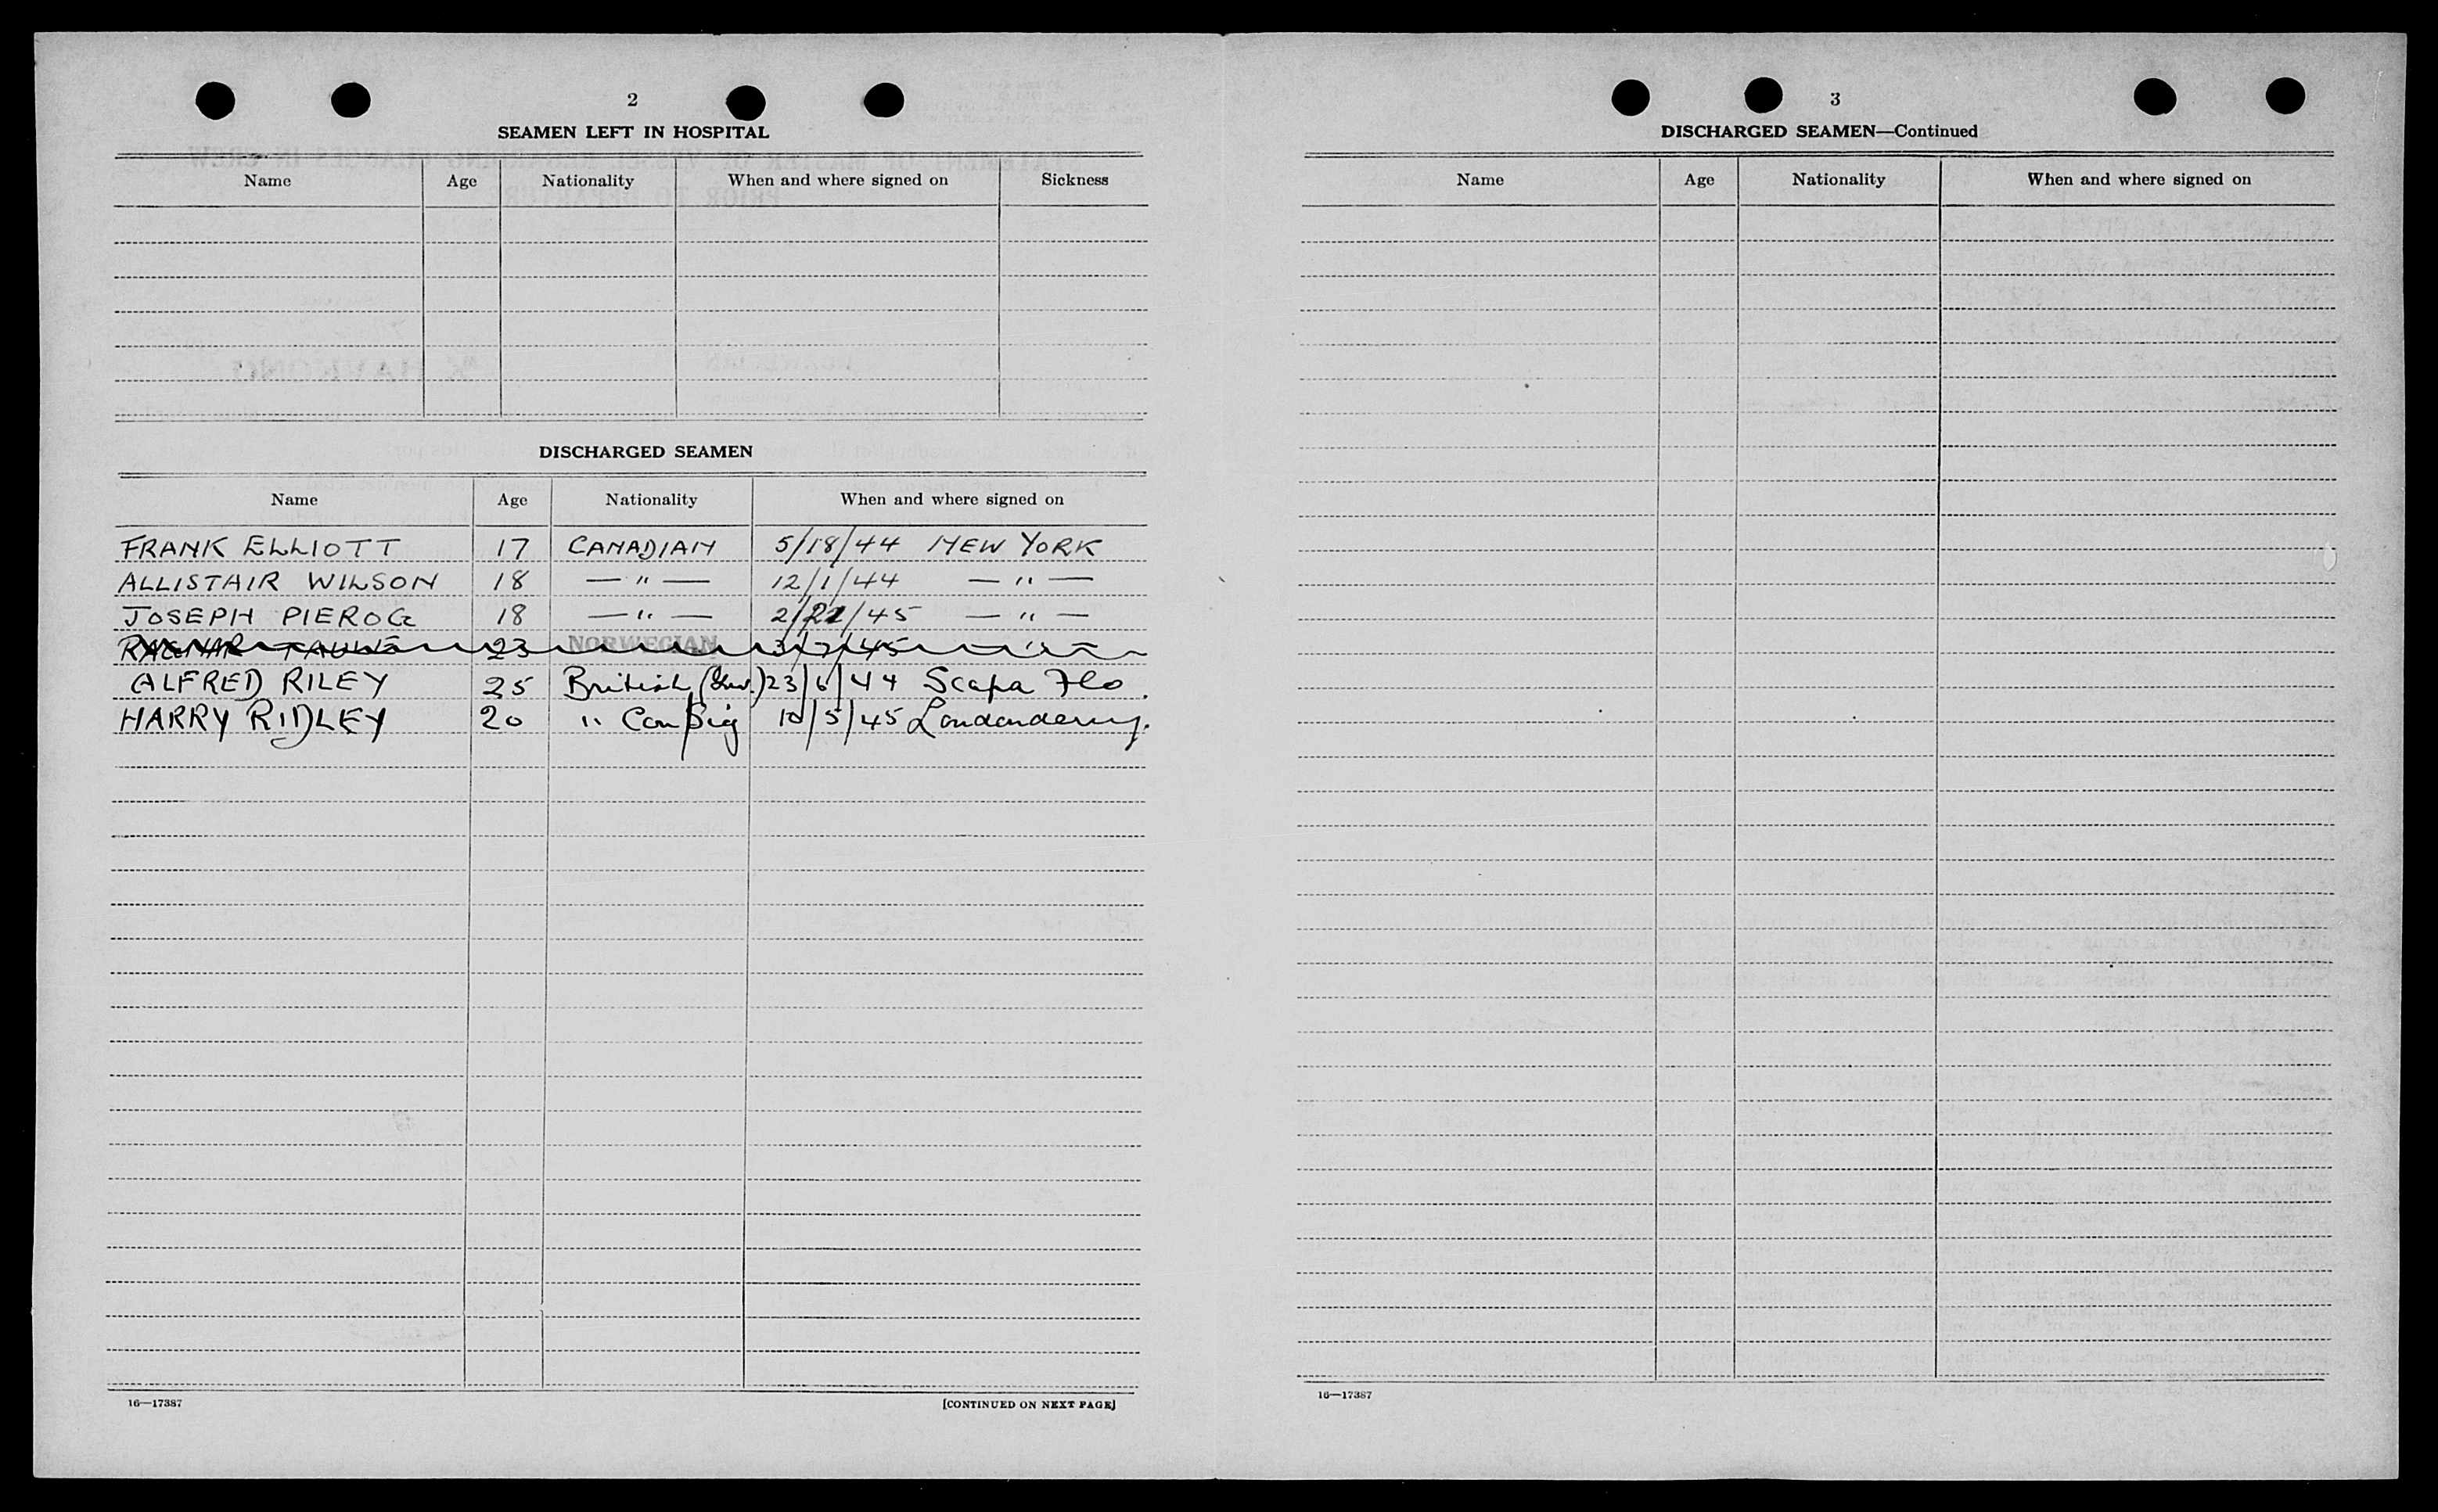 2
SEAMEN LEFT IN HOSPITAL
Name Age Nationality When and where signed on Sickness
DISCHARGED SEAMEN
Name Age Nationality When and where signed on
FRANK ELLIOTT 17 CANADIAN 5/18/44 NEW YORK
ALLISTAIR WILSON 18 — " — 12/1/44 — " —
JOSEPH PIEROG 18 — " — 2/21/45 — " —
RAGNAR 23 NORWEGIAN 3/7/45 — " —
ALFRED RILEY 25 British 23/6/44 Scapa Flo.
HARRY RIDLEY 20 " Con Sig 10/5/45 Londonderry.
16—17387
[CONTINUED ON NEXT PAGE]
3
DISCHARGED SEAMEN—Continued
Name Age Nationality When and where signed on
16—17387